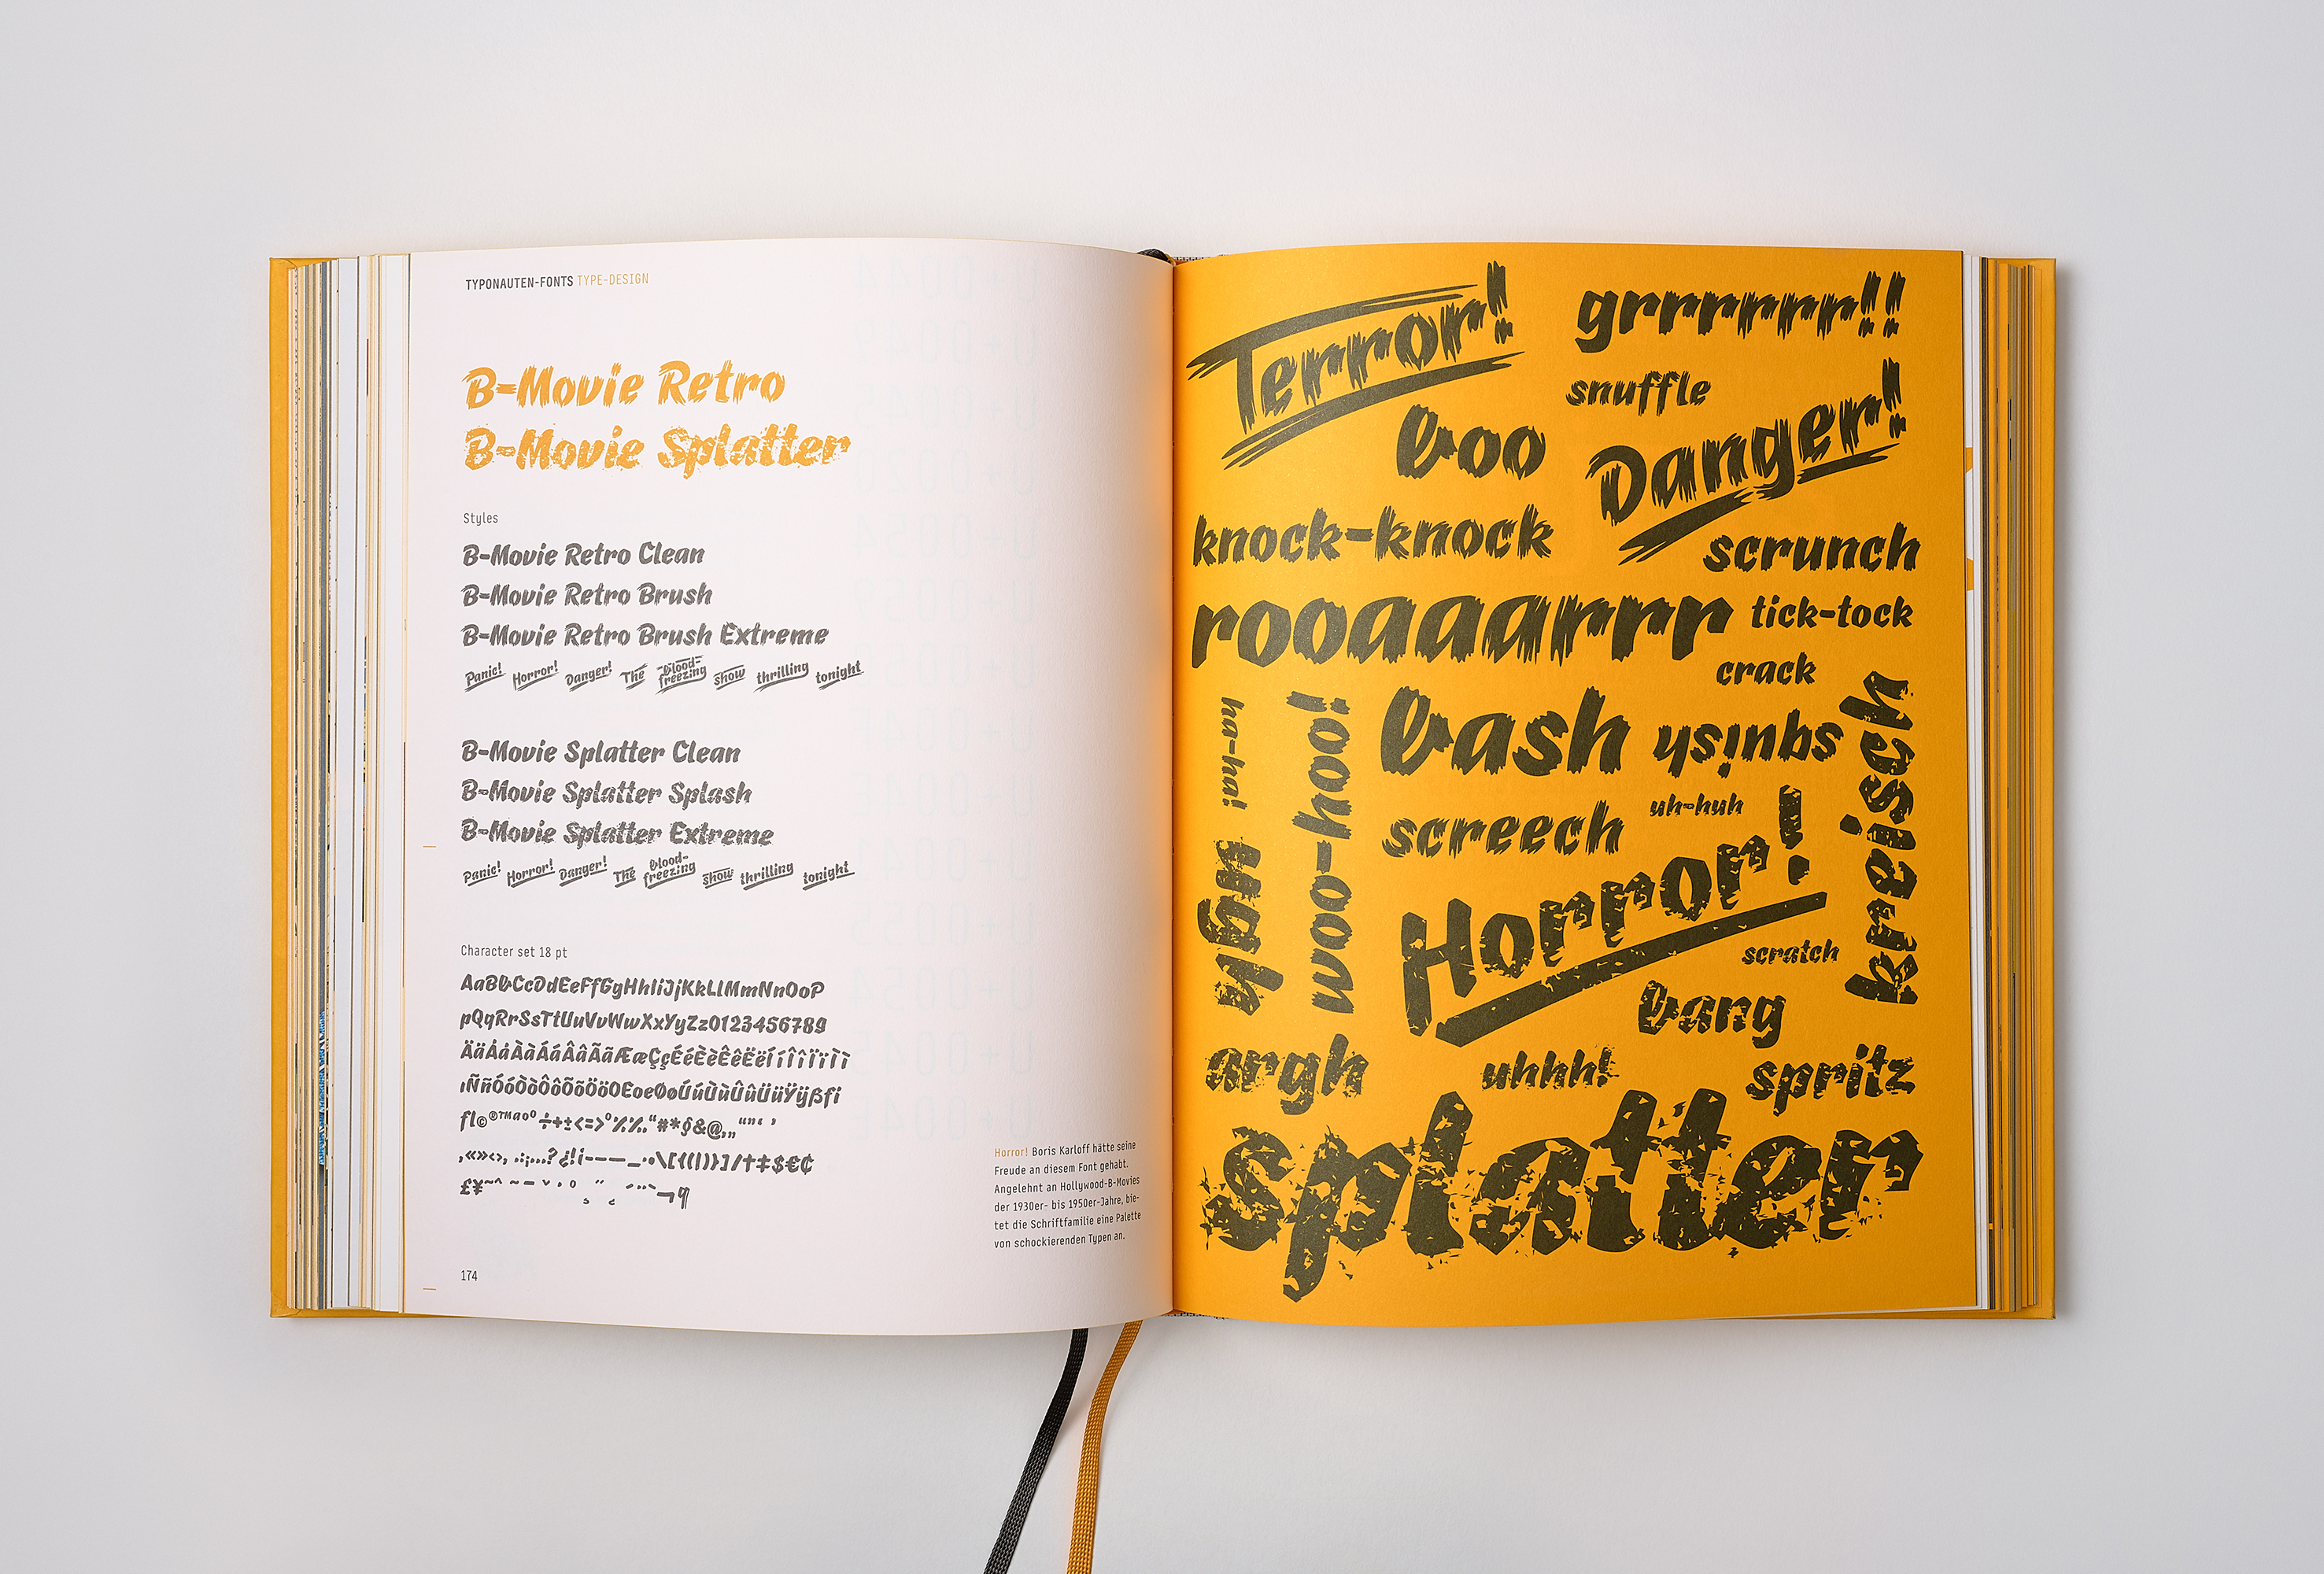 TYPONAUTEN-FONTS TYPE-DESIGN
B-Movie Retro
B-Movie Splatter
Styles
B-Movie Retro Clean
B-Movie Retro Brush
B-Movie Retro Brush Extreme
Panic! Horror! Danger! The blood-freezing show thrilling tonight
B-Movie Splatter Clean
B-Movie Splatter Splash
B-Movie Splatter Extreme
Panic! Horror! Danger! The blood-freezing show thrilling tonight
Character set 18 pt
AaBbCcDdEeFfGgHhIiJjKkLlMmNnOoP
pQqRrSsTtUuVvWwXxYyZz0123456789
Horror! Boris Karloff hätte seine
Freude an diesem Font gehabt.
Angelehnt an Hollywood-B-Movies
der 1930er- bis 1950er-Jahre, bie-
tet die Schriftfamilie eine Palette
von schockierenden Typen an.
174
Terror!
grrrrrrr!!
snuffle
boo
Danger!
knock-knock
scrunch
rooaaarrrr
tick-tock
crack
ha-ha!
woo-hoo!
bash
squish
kreisch
screech
uh-huh
ugh
Horror!
scratch
bang
argh
uhhh!
spritz
splatter